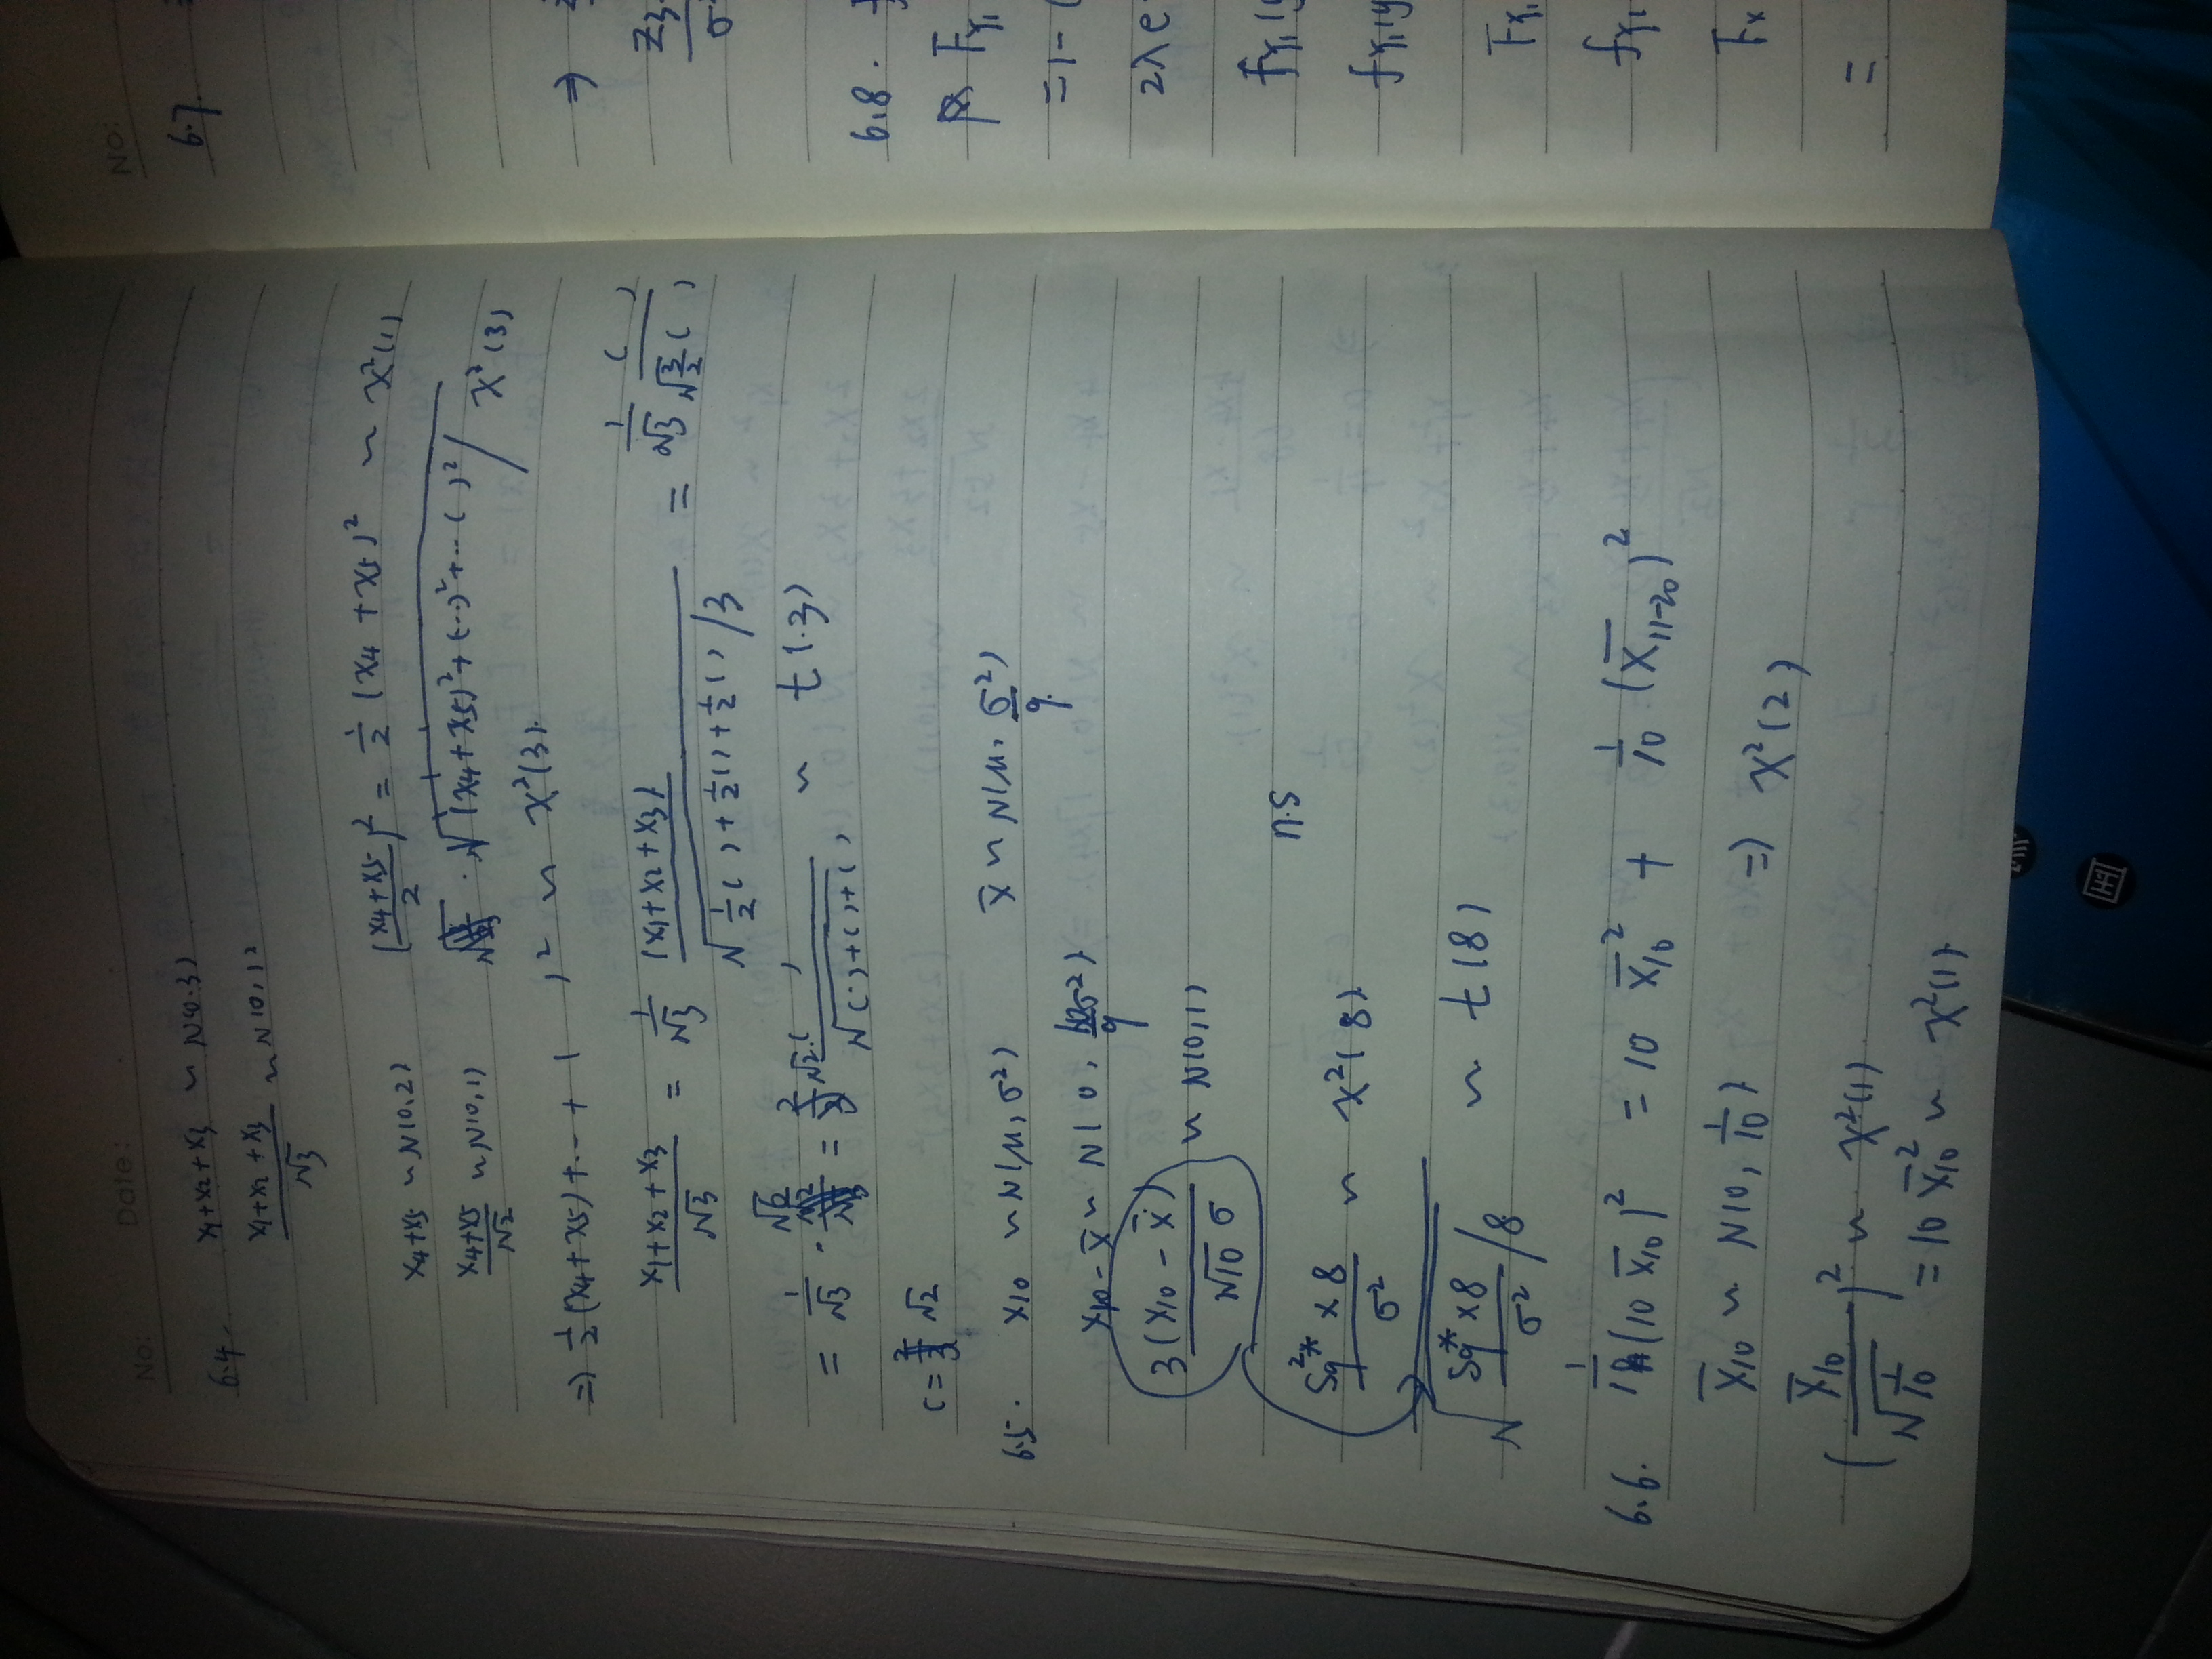 No: Date:
6.4. x₁+x₂+x₃ ~ N(0.3)
(x₁+x₂+x₃)/√3 ~ N(0,1)
x₄+x₅ ~ N(0,2) ((x₄+x₅)/2)² = 1/2 (x₄+x₅)² ~ χ²(1)
(x₄+x₅)/√2 ~ N(0,1) · √((x₄+x₅)²+(…)²+…( )² / χ²(3)
=> 1/2 (x₄+x₅)+…+( )² ~ χ²(3).
(x₁+x₂+x₃)/√3 = 1/√3 (x₁+x₂+x₃)/√(1/2( )+1/2( )+1/2( )/3) = 1/√3 ( )/(√(3/2)( )
= 1/√3 · √6 = √2·( )/√((·)+( )+( ) ~ t(.3)
c = √2
6.5. x₁₀ ~ N(μ, σ²) x̄ ~ N(μ, σ²/9)
x₁₀ - x̄ ~ N(0, 10σ²/9)
3(x₁₀ - x̄)/(√10 σ) ~ N(0,1)
n.s
S₉²* × 8/σ² ~ χ²(8)
√(S₉* ×8/σ² /8) ~ t(8)
6.6. 1/10 (10 X̄₁₀)² = 10 X̄₁₀² + 1/10 (X̄₁₁₋₂₀)²
X̄₁₀ ~ N(0, 1/10) => χ²(2)
(X̄₁₀/√(1/10))² ~ χ²(1)
= 10 X̄₁₀² ~ χ²(1).
No:
6.7.
=>
Z₃
σ
6.8.
F_Y₁
=1-(
2λe
f_Y₁(y
f_Y₁(y
F_Y₁
f_Y₁
F_X
=